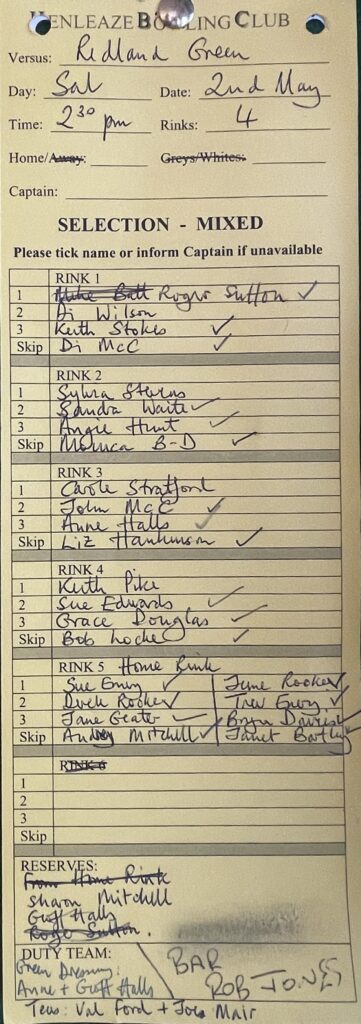 HENLEAZE BOWLING CLUB
Versus: Redland Green
Day: Sat Date: 2nd May
Time: 2 30 pm Rinks: 4
Home/Away: Greys/Whites:
Captain:
SELECTION - MIXED
Please tick name or inform Captain if unavailable
RINK 1
1 Mike Batt Roger Sutton ✓
2 Di Wilson
3 Keith Stokes ✓
Skip Di McC ✓
RINK 2
1 Sylvia Stevens
2 Sandra Waite ✓
3 Angie Hunt ✓
Skip Monica B-D ✓
RINK 3
1 Carole Stratford
2 John McC ✓
3 Anne Halls ✓
Skip Liz Hankinson ✓
RINK 4
1 Keith Pike
2 Sue Edwards ✓
3 Grace Douglas ✓
Skip Bob Locke ✓
RINK 5 Home Rink
1 Sue Emry ✓ June Rooker ✓
2 Derek Rooker ✓ Trev Emry ✓
3 Jane Geater ✓ Bryn Davies ✓
Skip Andrew Mitchell ✓ Janet Bartley ✓
RINK 6
1
2
3
Skip
RESERVES:
From Home Rink
Sharon Mitchell
Geoff Halls
Roger Sutton.
DUTY TEAM: BAR
Green Dressing: ROB JONES
Anne + Geoff Halls
Teas: Val Ford + Joes Mair